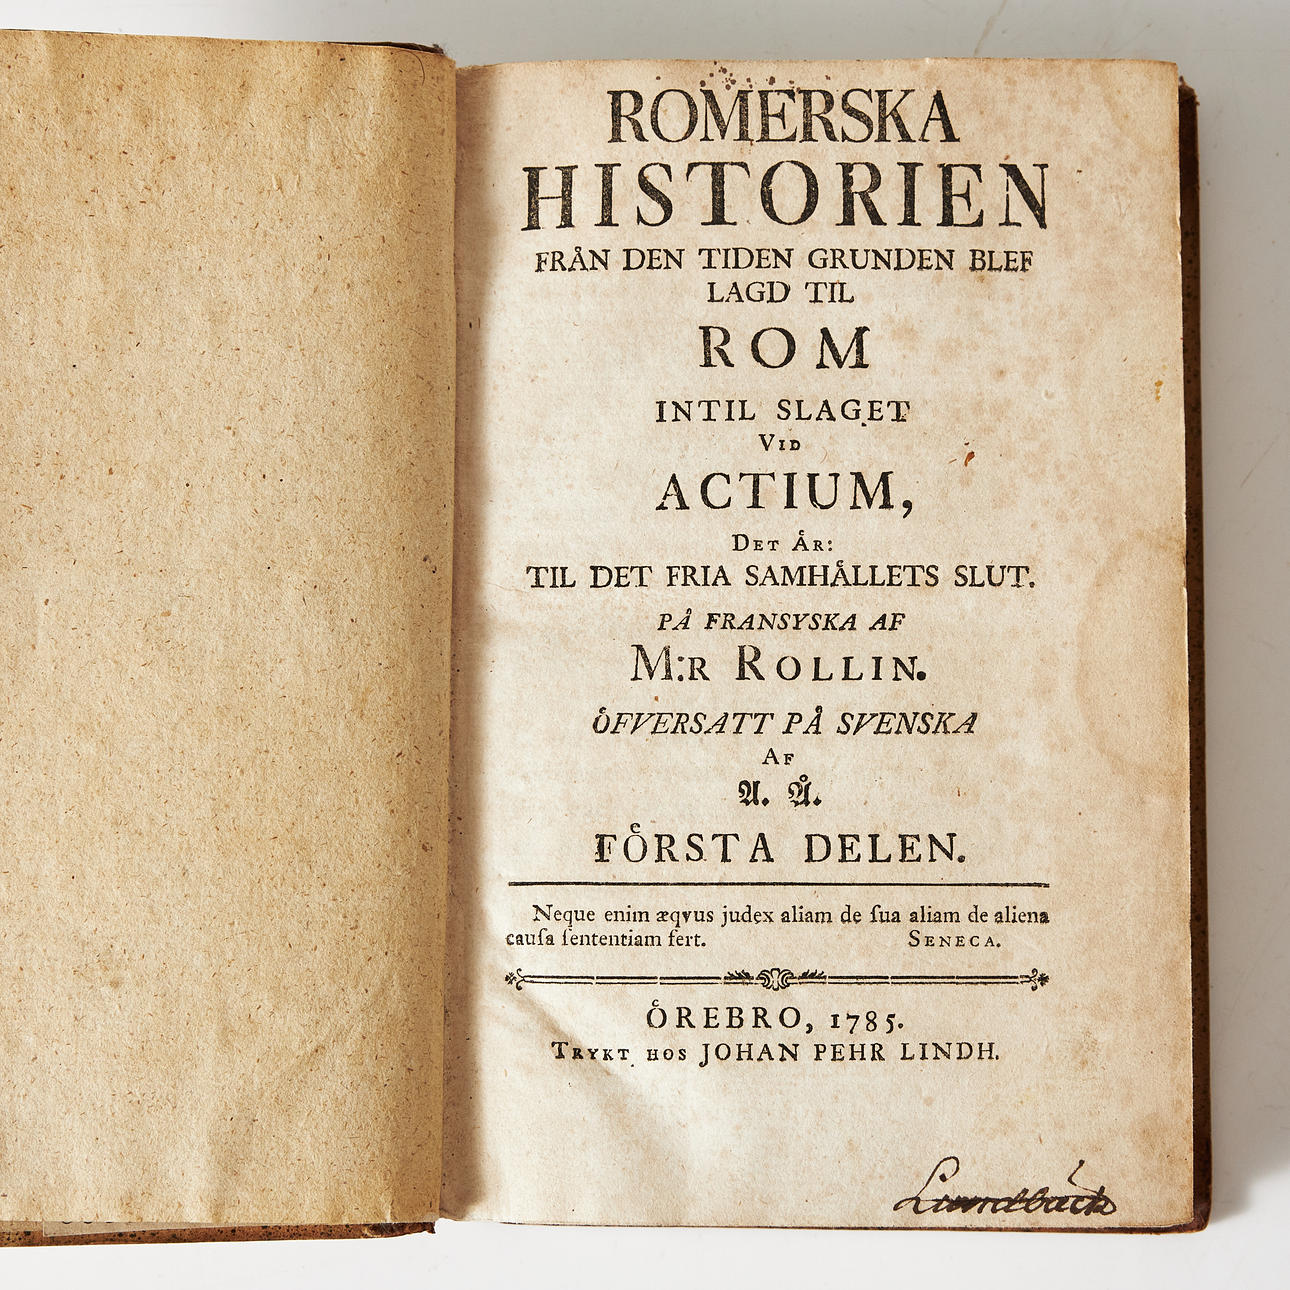 ROMERSKA
HISTORIEN
FRÅN DEN TIDEN GRUNDEN BLEF
LAGD TIL
ROM
INTIL SLAGET
VID
ACTIUM,
DET ÅR:
TIL DET FRIA SAMHÅLLETS SLUT.
PÅ FRANSYSKA AF
M:R ROLLIN.
ÖFVERSATT PÅ SVENSKA
AF
A. Å.
FÖRSTA DELEN.
Neque enim æqvus judex aliam de ſua aliam de aliena
cauſa ſententiam fert. SENECA.
ÖREBRO, 1785.
TRYKT HOS JOHAN PEHR LINDH.
Lundbäck